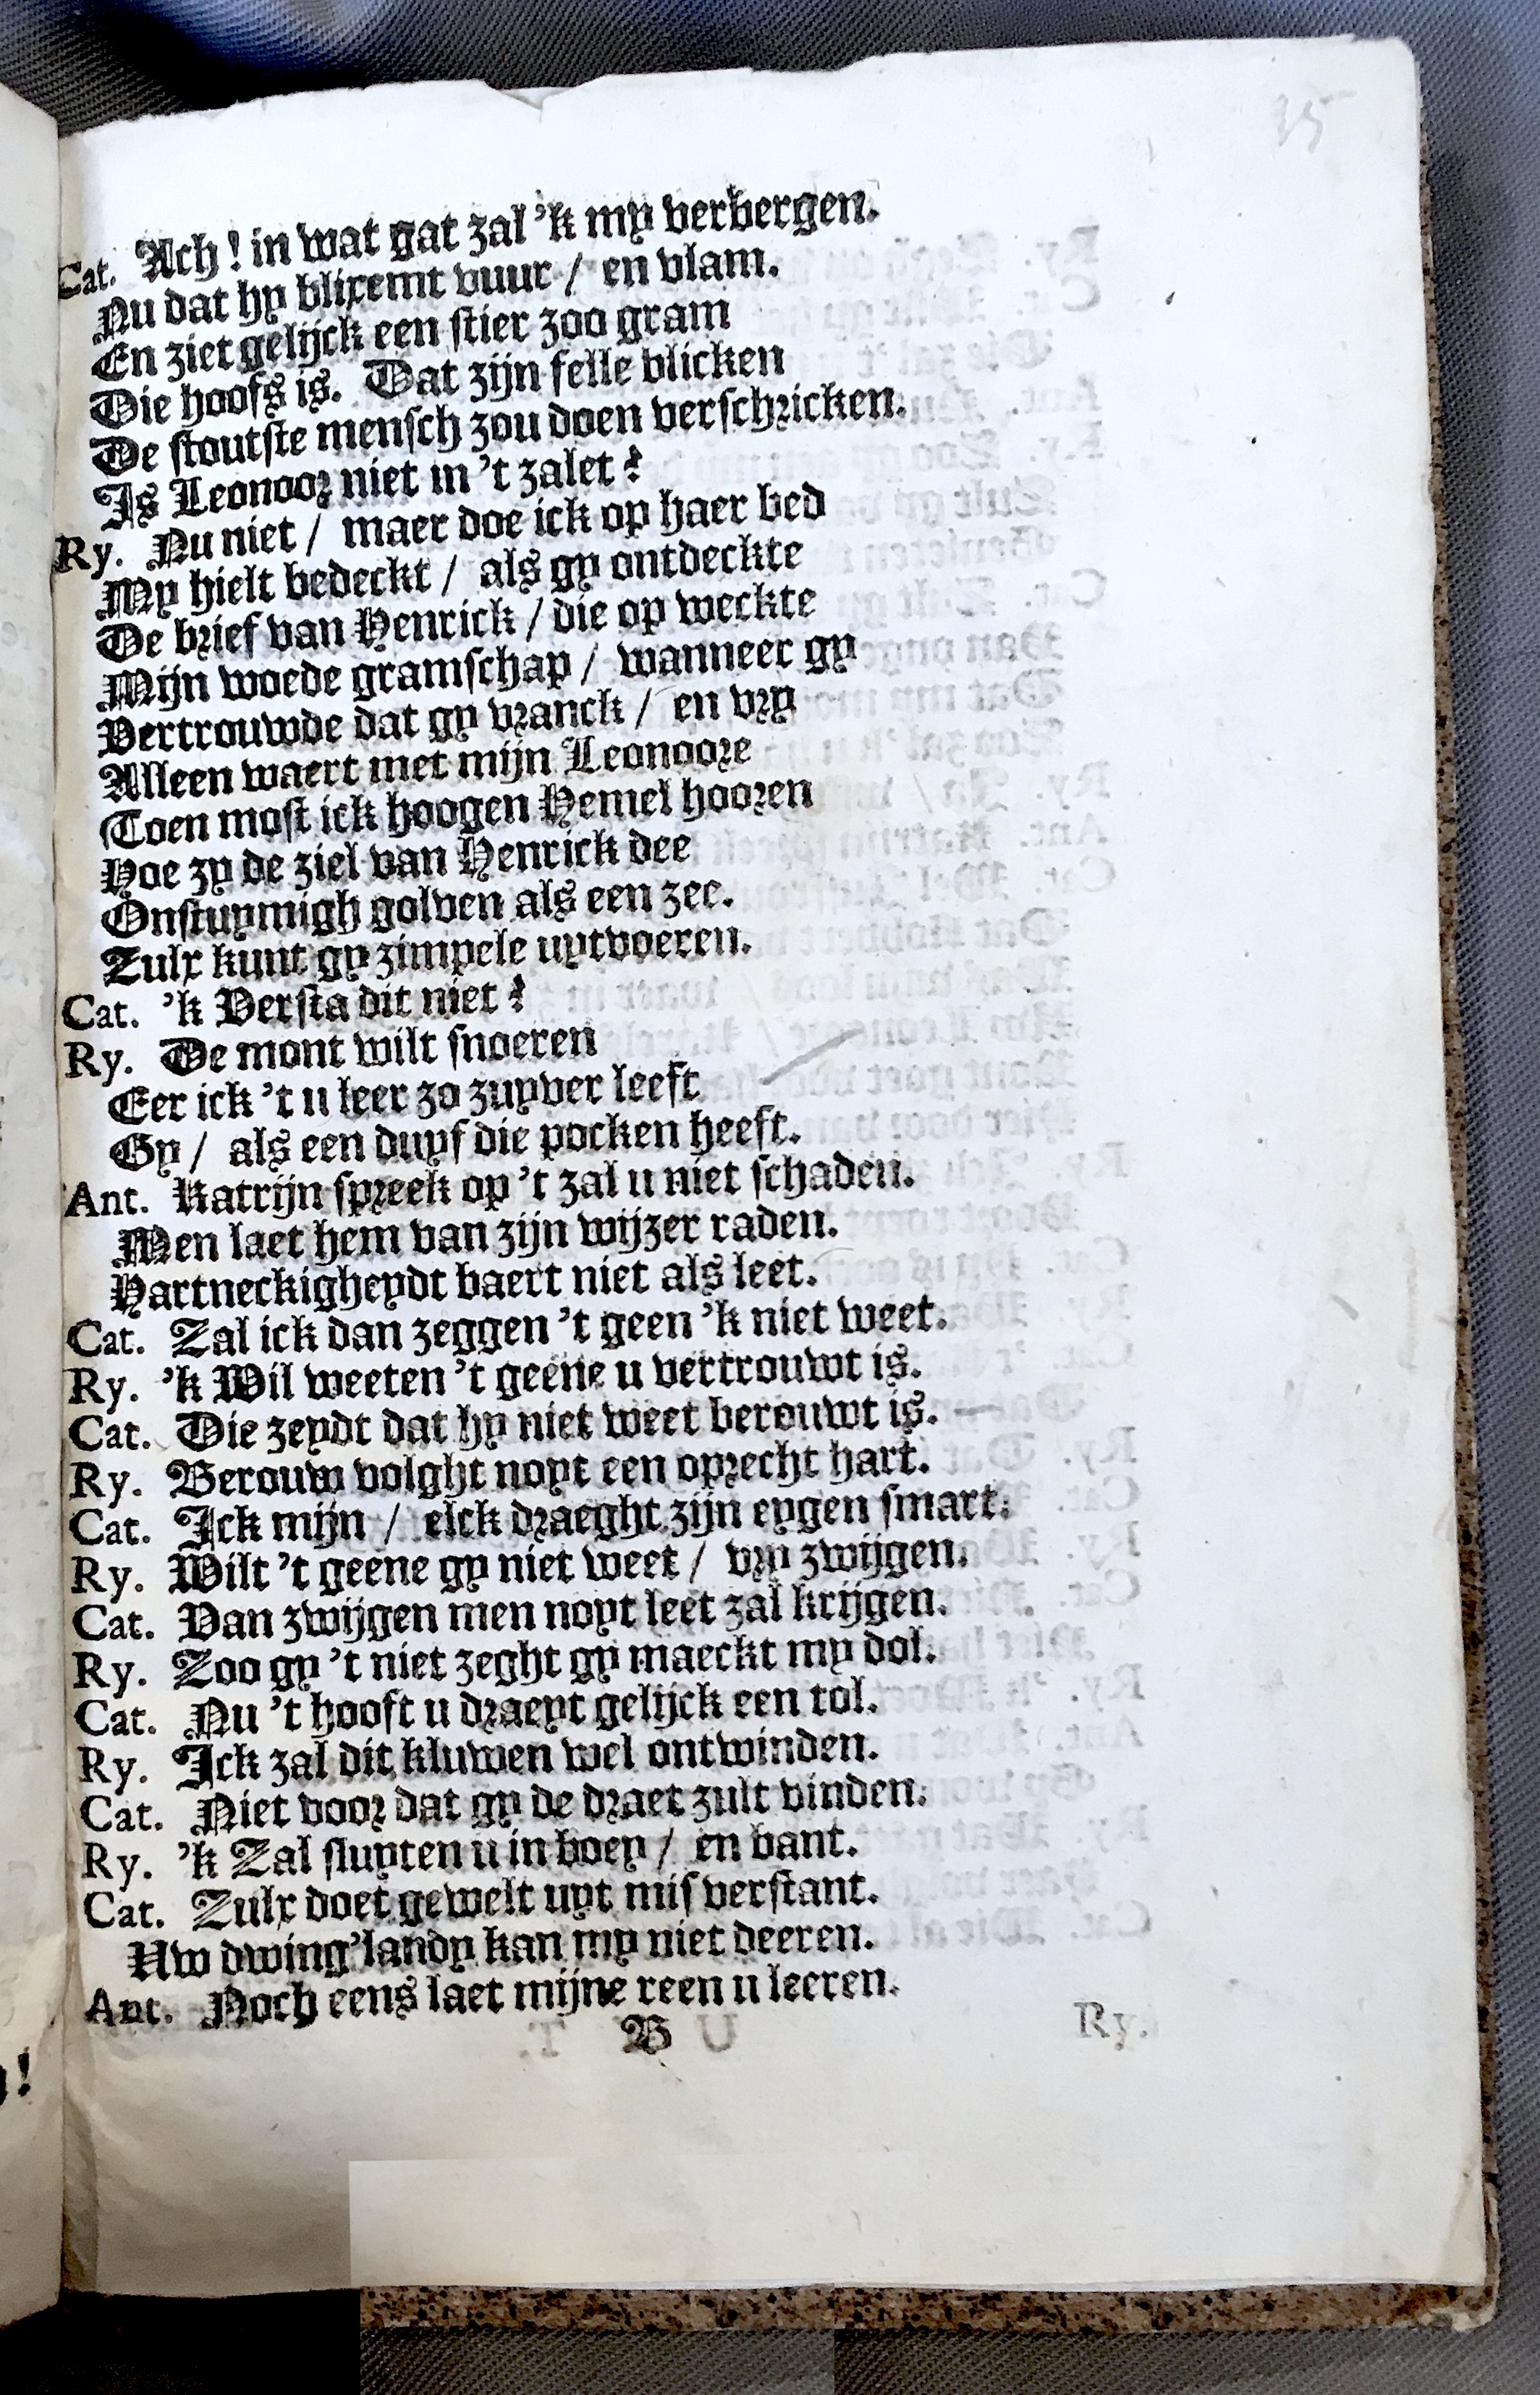 Cat. Ach! in wat gat zal 'k my verbergen.
Nu dat hy blixemt vuur / en vlam.
En ziet gelijck een stier zoo gram
Die hoofs is. Dat zijn felle blicken
De stoutste mensch zou doen verschricken.
Is Leonoor niet in 't zalet?
Ry. Nu niet / maer doe ick op haer bed
My hielt bedeckt / als gy ontdeckte
De brief van Henrick / die op weckte
Mijn woede gramschap / wanneer gy
Vertrouwde dat gy vranck / en vry
Alleen waert met mijn Leonoore
Toen most ick hoogen Hemel hooren
Hoe zy de ziel van Henrick dee
Onstuymigh golven als een zee.
Zulx kunt gy zimpele uytvoeren.
Cat. 'k Versta dit niet?
Ry. De mont wilt snoeren
Eer ick 't u leer zo zuyver leeft
Gy / als een duyf die pocken heeft.
Ant. Katrijn spreek op 't zal u niet schaden.
Men laet hem van zijn wijzer raden.
Hartneckigheydt baert niet als leet.
Cat. Zal ick dan zeggen 't geen 'k niet weet.
Ry. 'k Wil weeten 't geene u vertrouwt is.
Cat. Die zeydt dat hy niet weet berouwt is.
Ry. Berouw volght noyt een oprecht hart.
Cat. Ick mijn / elck draeght zijn eygen smart.
Ry. Wilt 't geene gy niet weet / vry zwijgen.
Cat. Van zwijgen men noyt leet zal krijgen.
Ry. Zoo gy 't niet zeght gy maeckt my dol.
Cat. Nu 't hooft u draeyt gelijck een tol.
Ry. Ick zal dit kluwen wel ontwinden.
Cat. Niet voor dat gy de draet zult vinden.
Ry. 'k Zal sluyten u in boey / en bant.
Cat. Zulx doet gewelt uyt mis verstant.
Uw dwing'landy kan my niet deeren.
Ant. Noch eens laet mijne reen u leeren.
B
Ry.